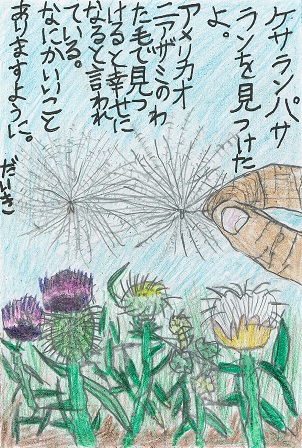 ケサランパサ
ランを見つけた
よ。
アメリカオ
ニアザミのわ
た毛で見つ
けると幸せに
なると言われ
ている。
なにかいいこと
ありますように。
だいき